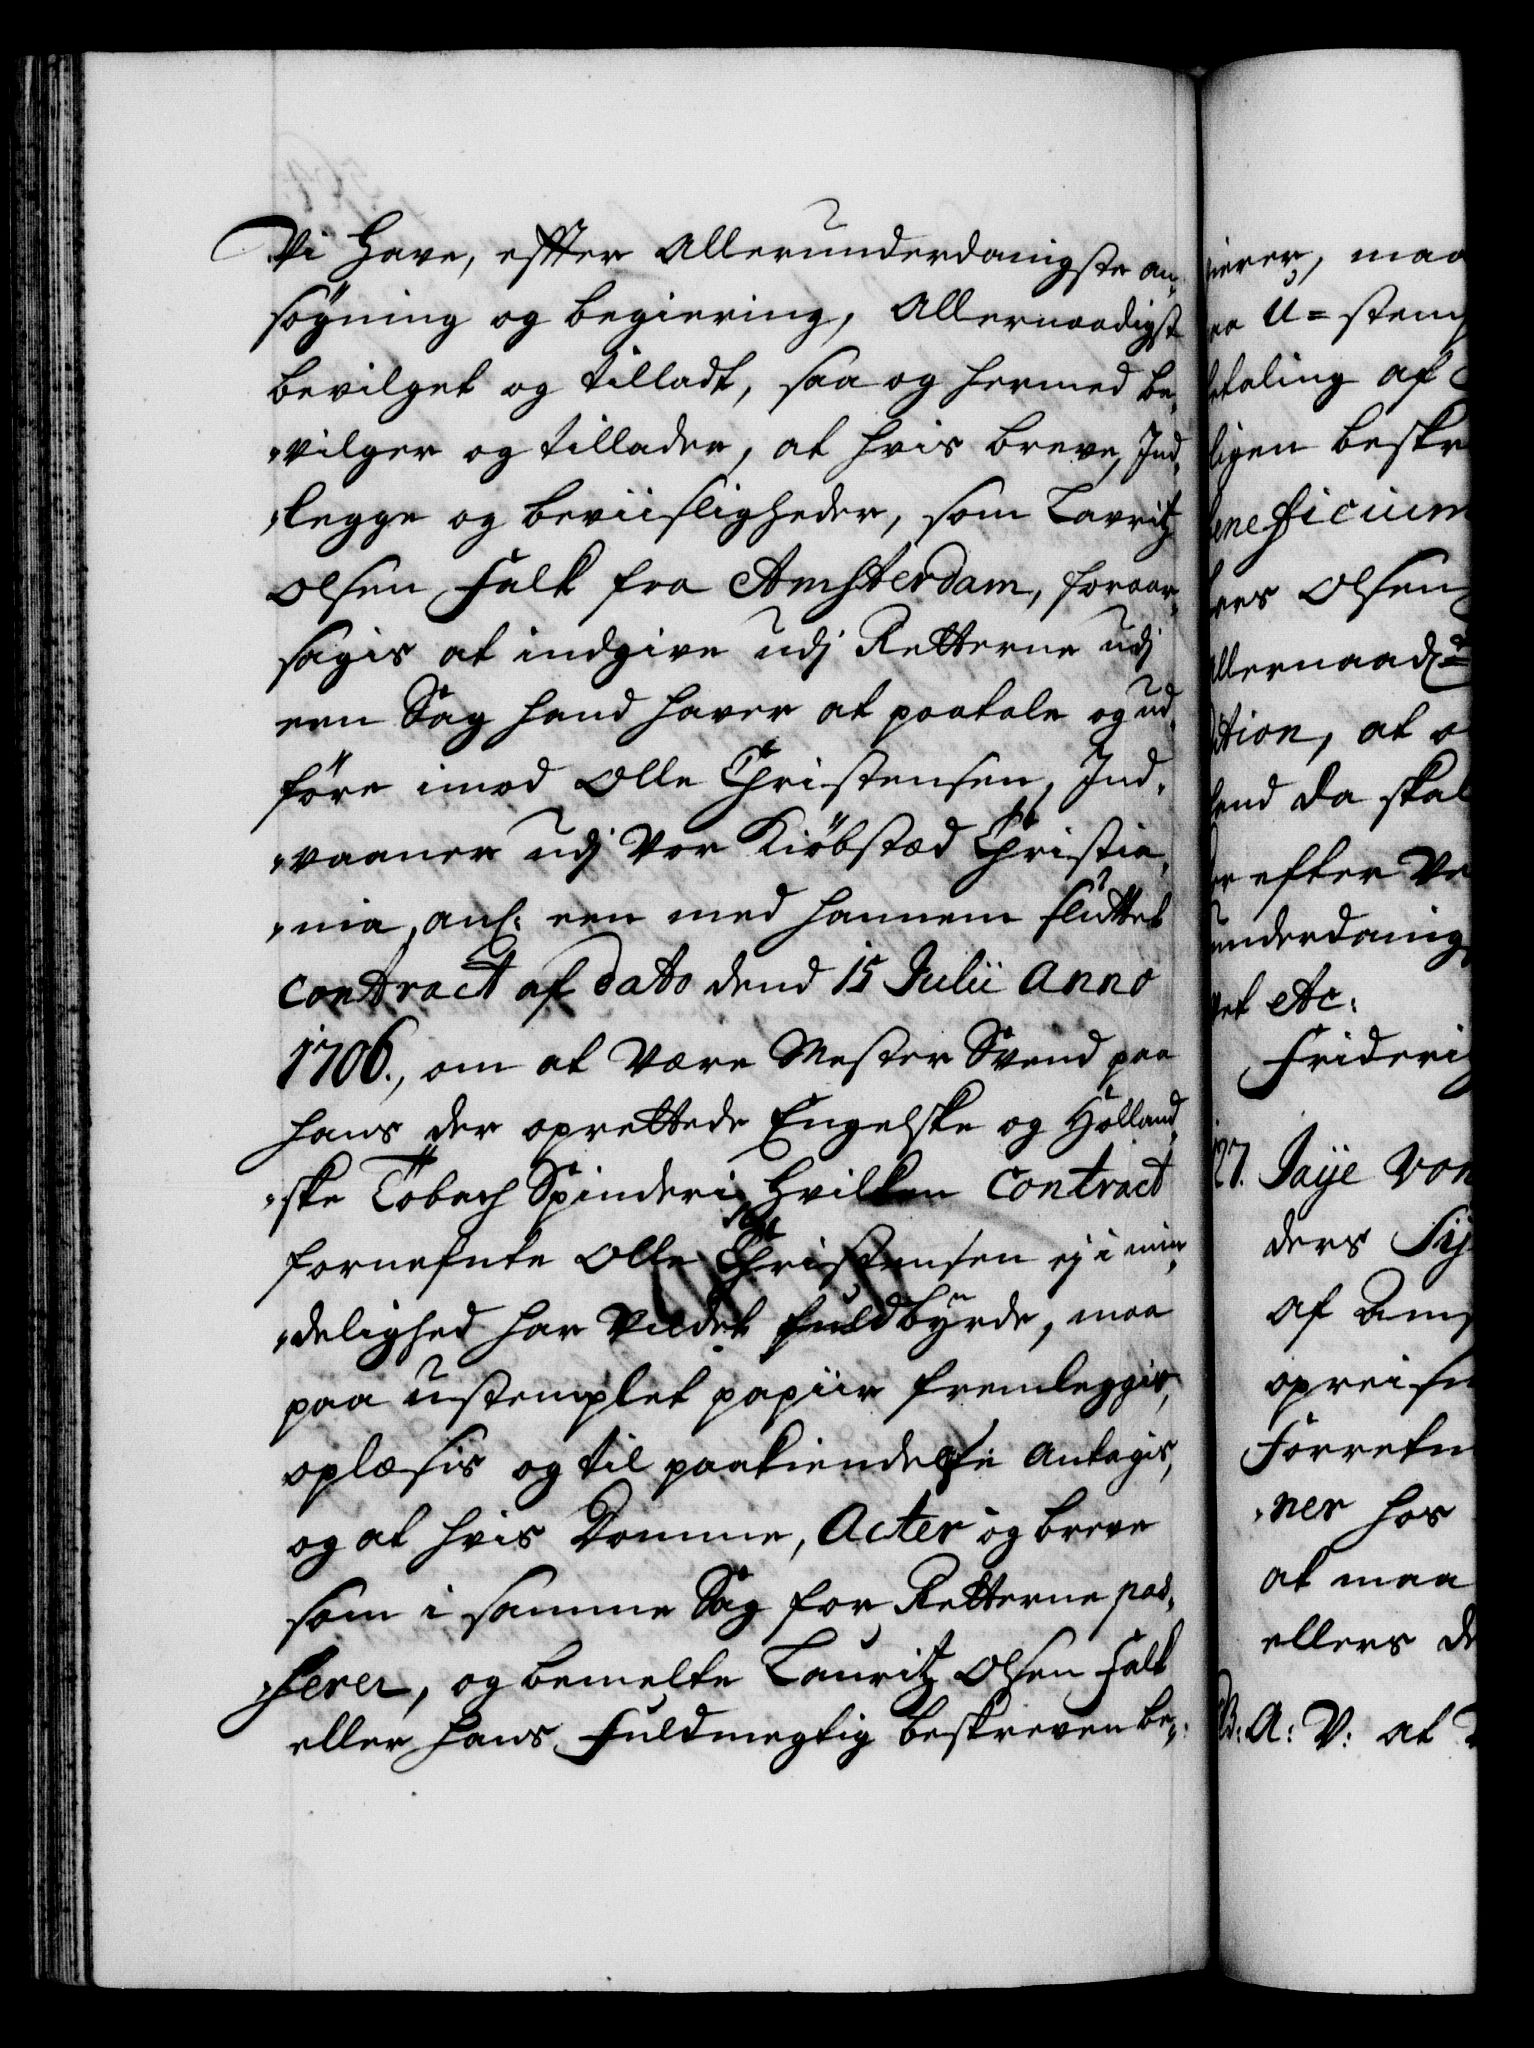 Vi Have, effter Allerunderdanigste an,
søgning og begiering, Allernaadigst
bevilget og tilladt, saa og hermed be,
,vilger og tillader, at hvis breve, Ind,
,legge og beviisligheder, som Lavritz
Olsen Falk fra Amsterdam, foraar,
sagis at indgive udj Retterne udj
een Sag hand haver at paatale og ud,
føre imod Olle Christensen, Ind,
,vaaner udj Vor Kiøbstæd Christia,
,nia, anl: een med hannem sluttet
Contract af dato dend 15 Julii Anno
1706., om at være Mester Svend paa
hans der oprettede Engelske og Holland,
,ske Tobach Spinderi, Hvilken Contract
fornefnte Olle Christensen ej i min,
,delighed har vildet fuldbyrde, maa
paa ustemplet papiir fremleggis,
oplæsis og til paakiendelse antagis,
og at hvis Domme, Acter og breve
som i samme Sag for Retterne pas,
,serer, og bemelte Lauritz Olsen Falk
eller hans Fuldmegtig beskreven be,
ierer, maa
paa U=stemp
etaling af
ligen beskr
beneficium
Olsen
Allernaad
ation, at
hend da skal
er efter Vo
underdanig
et etc:
Frideri
27. Jaye Von
ders
af Ams
opreisn
Forretn
,ner hos
at maa
ellers de
B: A: V: at